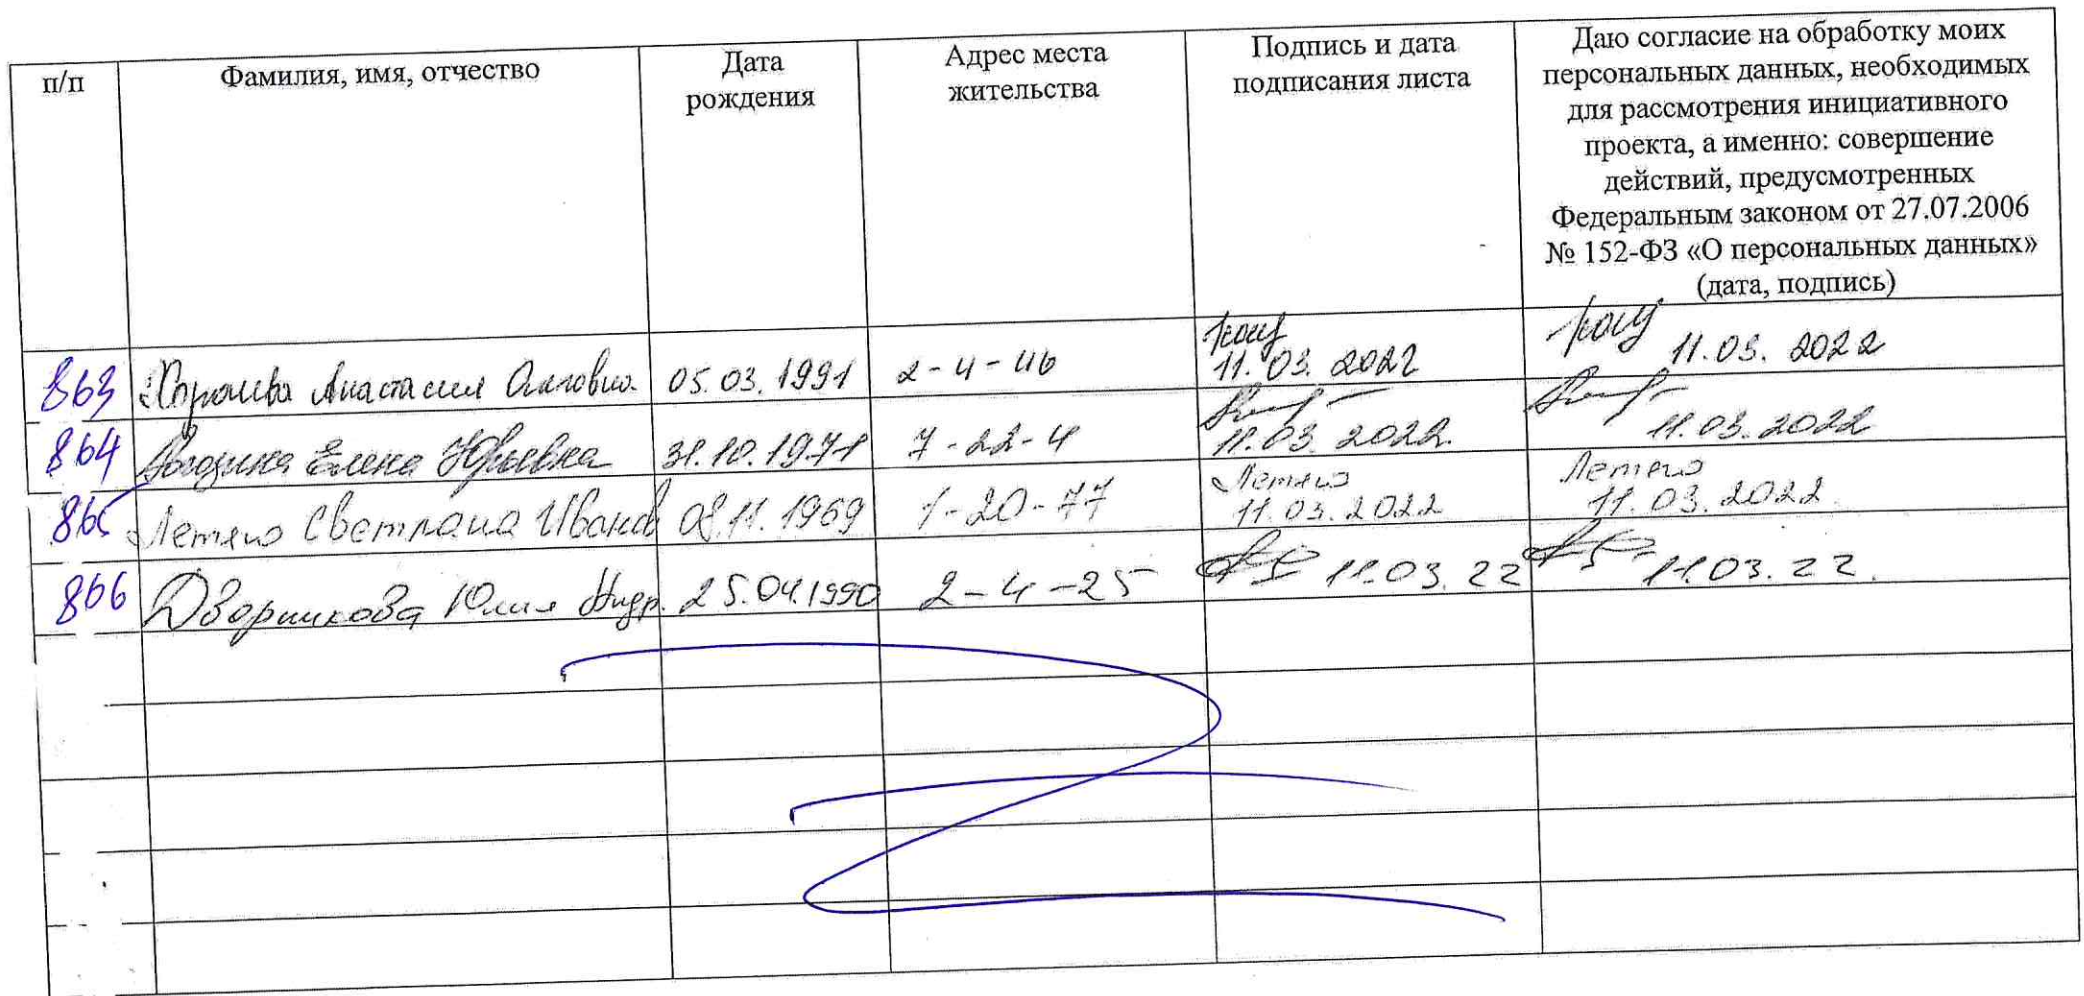 п/п Фамилия, имя, отчество Дата рождения Адрес места жительства Подпись и дата подписания листа
Даю согласие на обработку моих
персональных данных, необходимых
для рассмотрения инициативного
проекта, а именно: совершение
действий, предусмотренных
Федеральным законом от 27.07.2006
№ 152-ФЗ «О персональных данных»
(дата, подпись)
863 Анастасия 05.03.1991 2-4-46 11.03.2022 11.03.2022
864 Елена Юрьевна 31.10.1971 7-22-4 11.03.2022. 11.03.2022
865 Летяго Светлана Иванов 08.11.1969 1-20-77 Летяго 11.03.2022 Летяго 11.03.2022
866 Дворникова Юлия Андр. 25.04.1990 2-4-25 11.03.22 11.03.22.